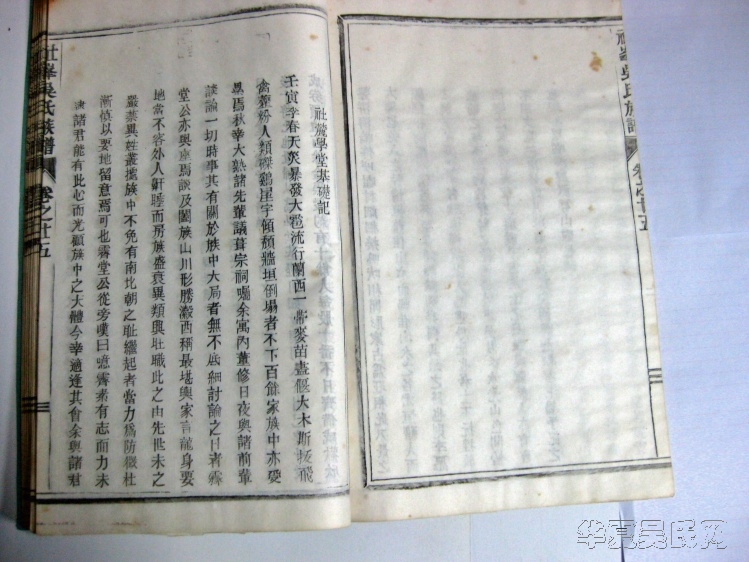 社峯吳氏族譜
卷之廿五
社麓學堂基礎記
壬寅季春天災暴發大雹流行蘭西一帶麥苗盡偃大木斯拔飛
禽蘁粉人類磔鷄屋宇傾頹牆垣倒塌者不下百餘家族中亦
是焉秋幸大熟諸先輩議葺宗祠囑余寓內董修日夜與諸前輩
談論一切時事其有關於族中大局者無不底細討論之日者霽
堂公亦與座焉談及闔族山川形勝瀫西稱最堪輿家言龍身要
地當不容外人鼾睡而房族盛衰異類興旺職此之由先世未之
嚴禁異姓叢擾族中不免有南北朝之耻繼起者當力爲防微杜
漸慎以要地留意焉可也霽堂公從旁嘆曰噫霽素有志而力未
諸君能有此心而光顧族中之大體今幸適逢其會余與諸君
社峯吳氏族譜
卷之廿五
华夏吴氏网